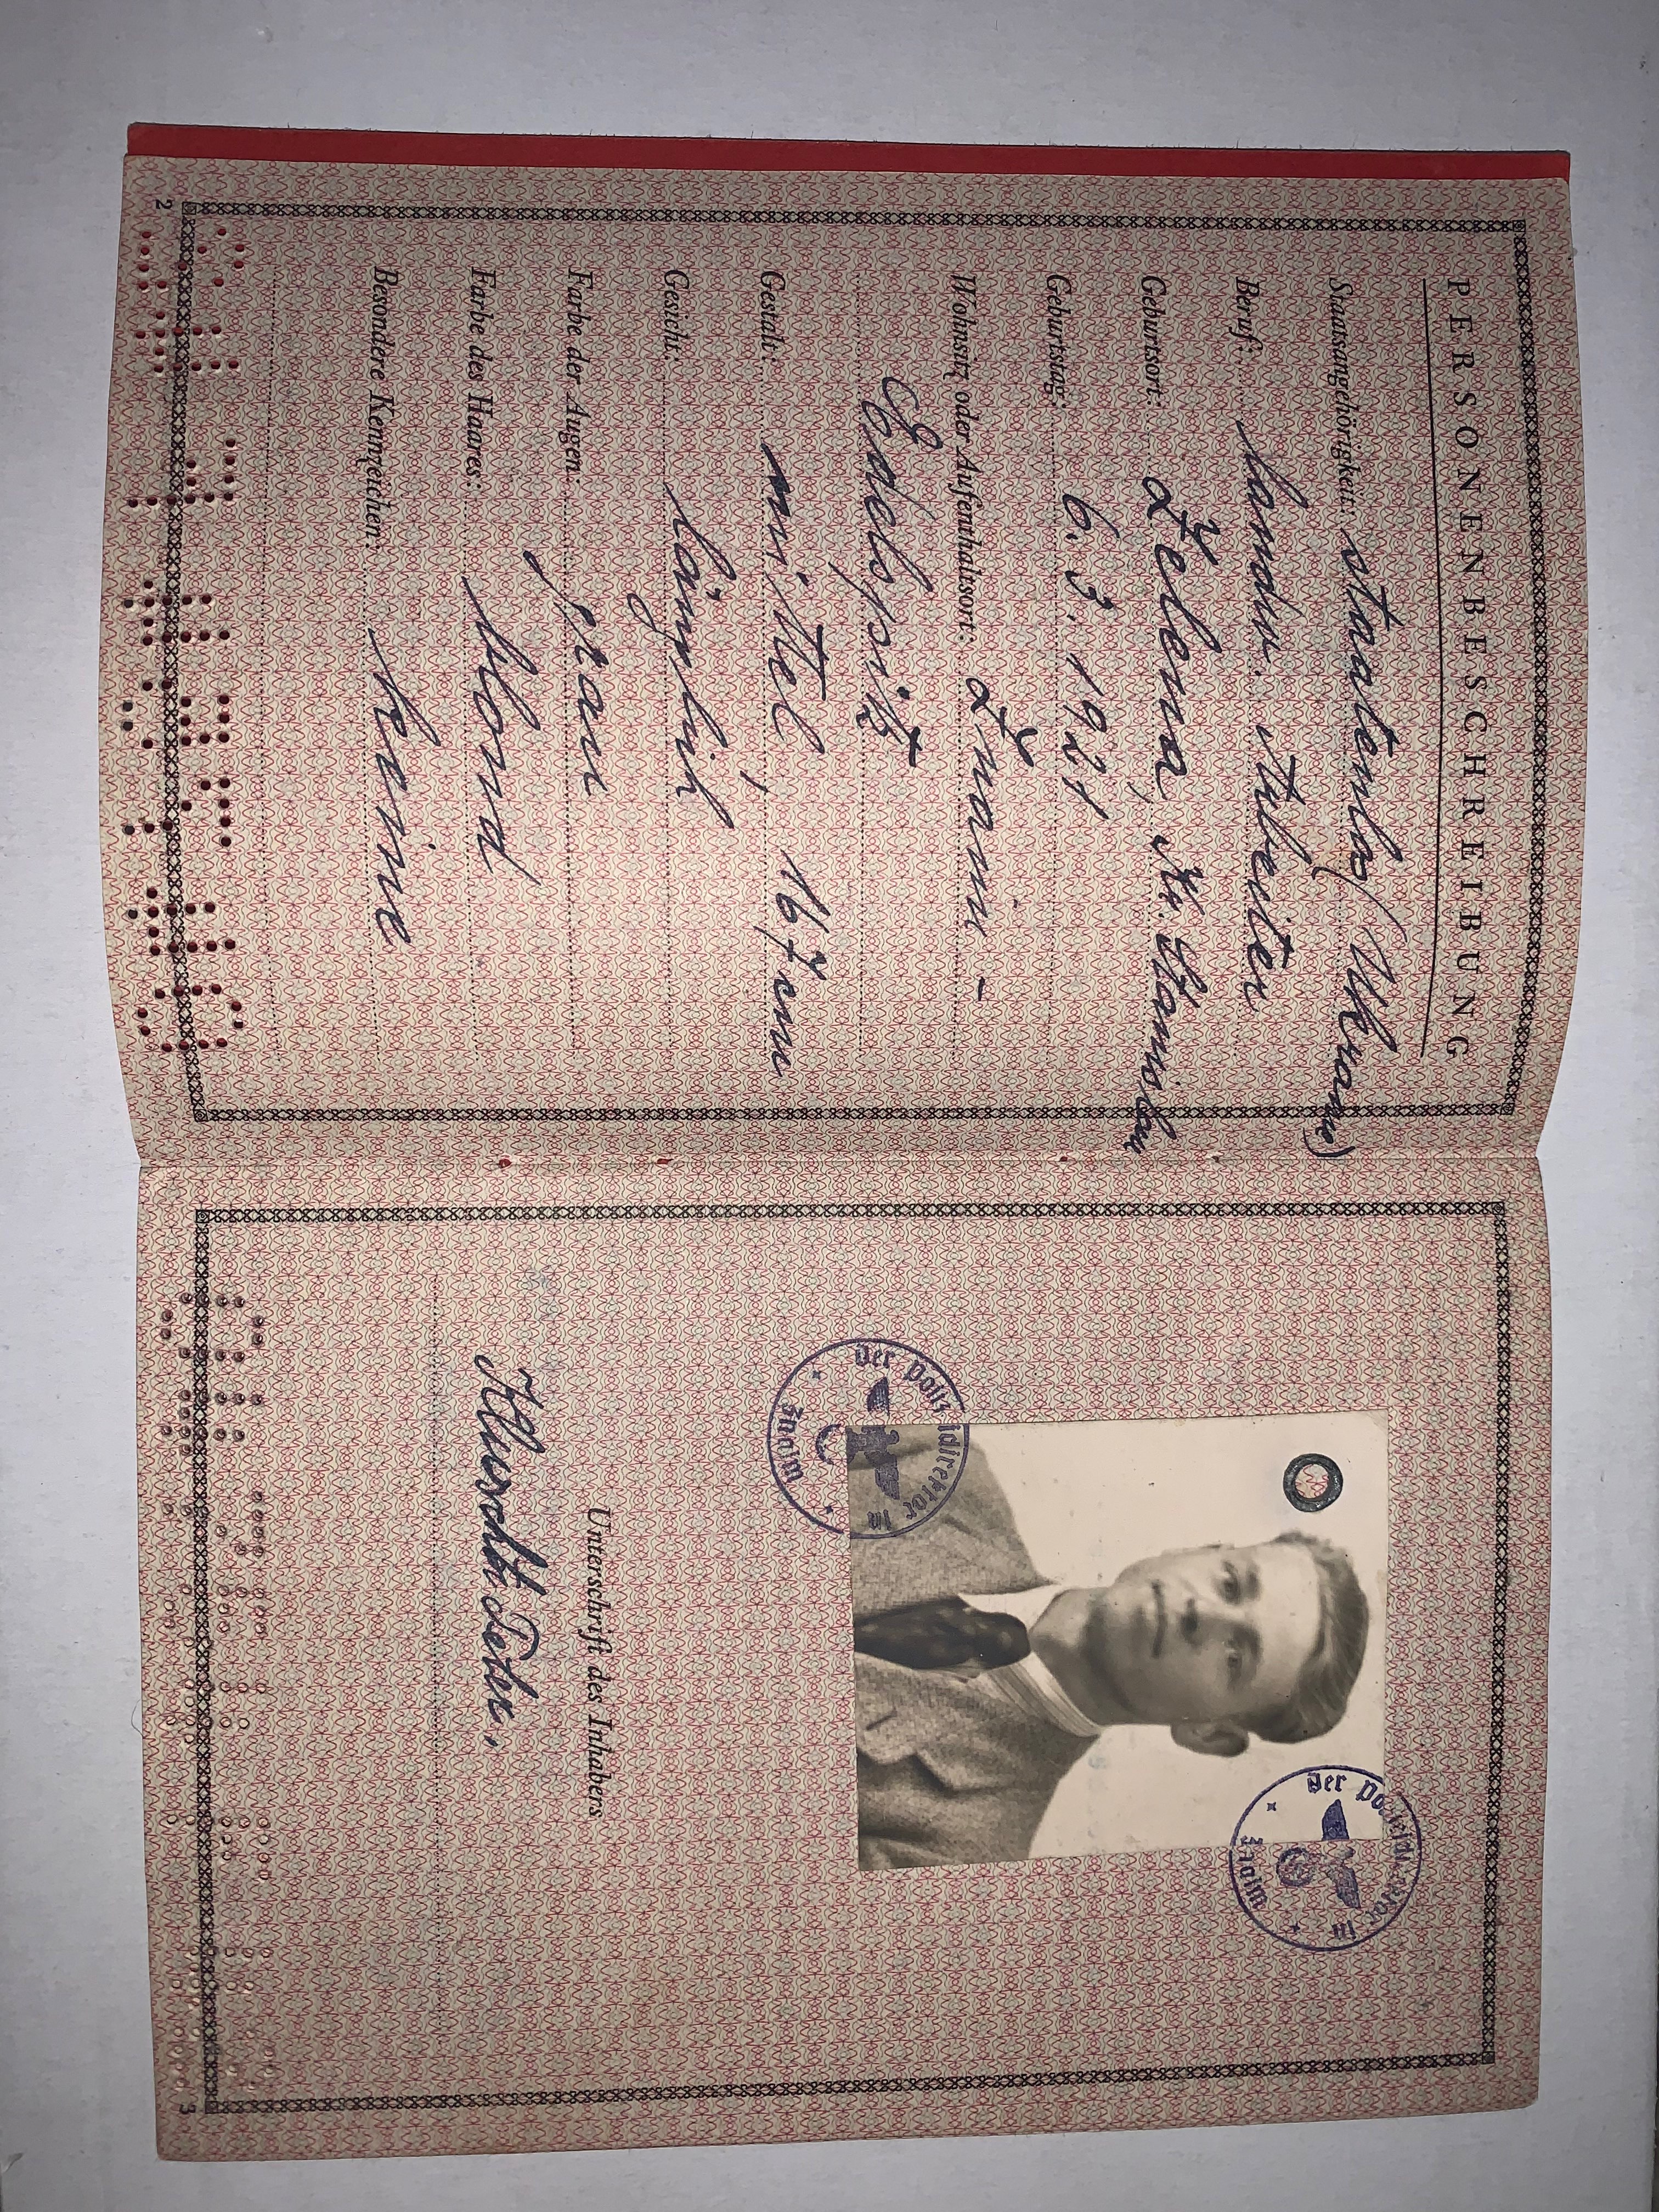 PERSONENBESCHREIBUNG
Staatsangehörigkeit: staatenlos (Ukraine)
Beruf: landw. Arbeiter
Geburtsort: Zelena, Kr. Stanislau
Geburtstag: 6.3.1921
Wohnsitz oder Aufenhaltsort: Znaim -
Edelspitz
Gestalt: mittel, 167 cm
Gesicht: länglich
Farbe der Augen: grau
Farbe des Haares: blond
Besondere Kennzeichen: Keine
2
Der Polizeidirektor in
Znaim
Der Polizeidirektor in
Znaim
Unterschrift des Inhabers
3